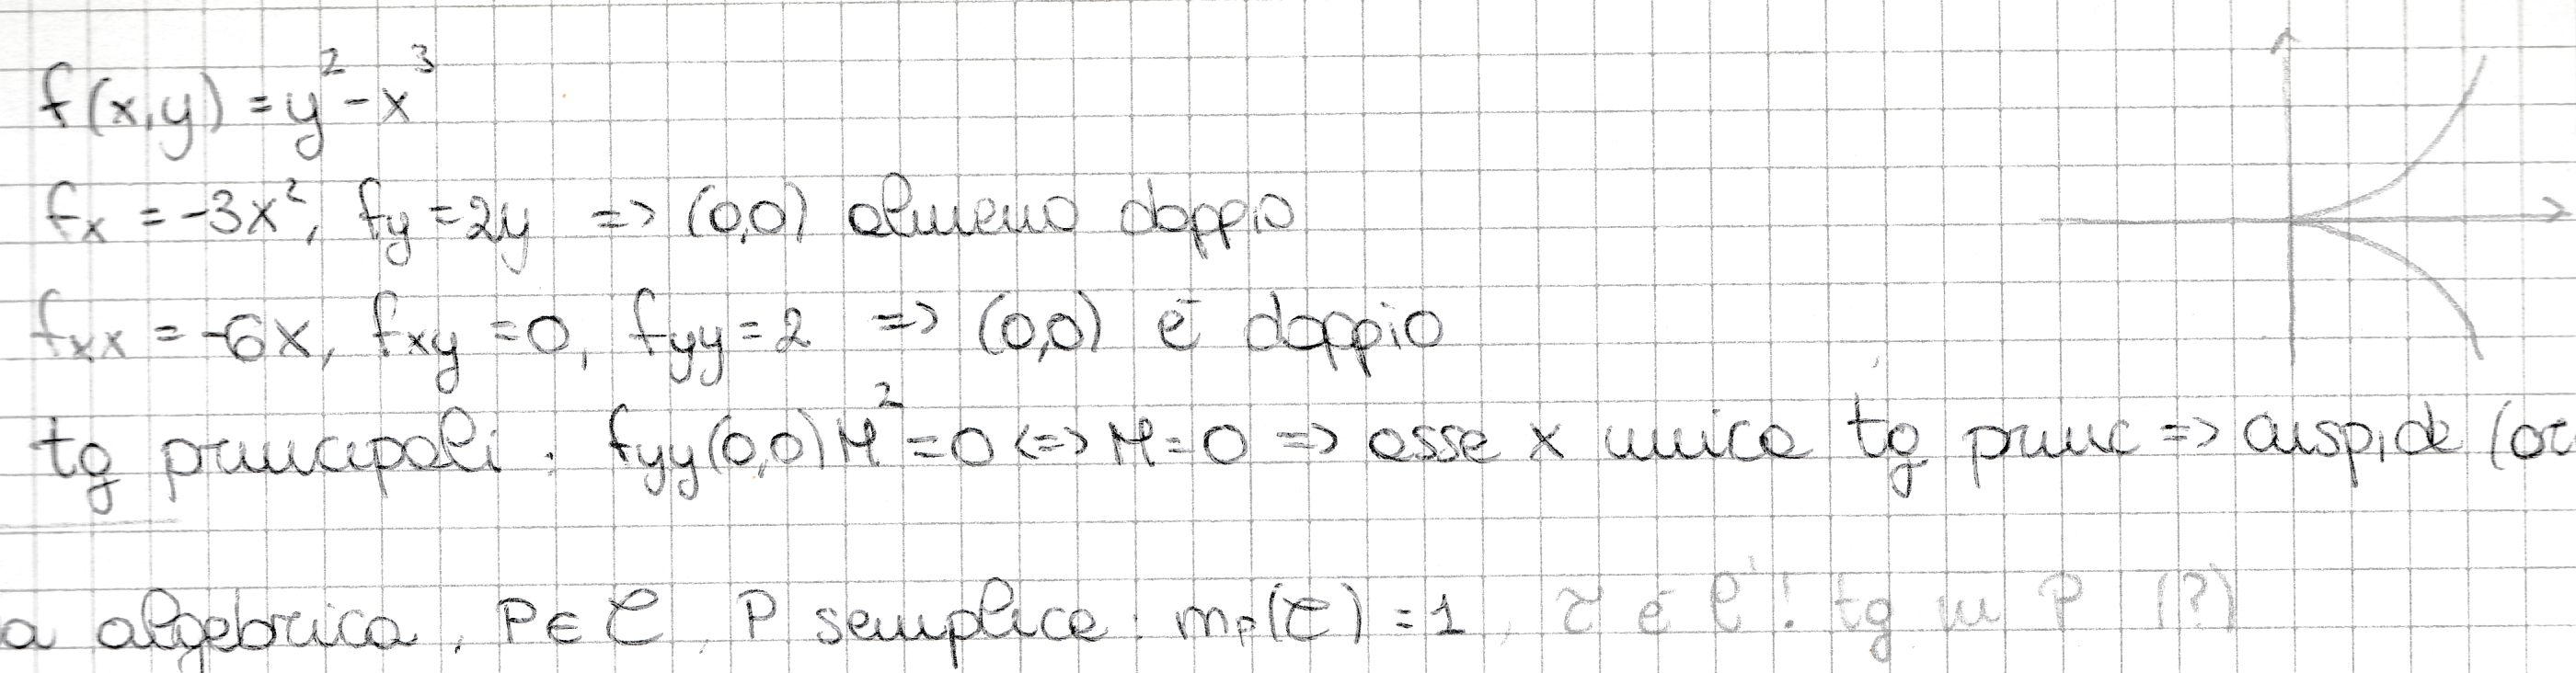 f(x,y) = y² - x³
fx = -3x², fy = 2y => (0,0) almeno doppio
fxx = -6x, fxy = 0, fyy = 2 => (0,0) è doppio
tg principali : fyy(0,0)M² = 0 <=> M = 0 => asse x unica tg princ => cuspide (or
a algebrica, P∈C, P semplice : mp(C) = 1, τ è l'! tg in P (?)